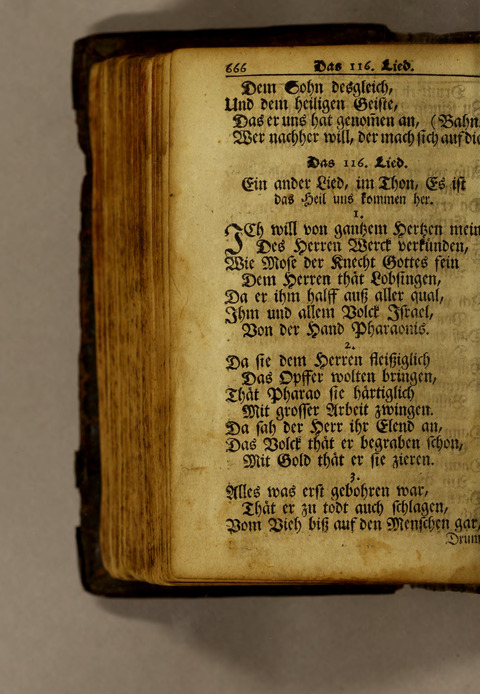 666 Das 116. Lied.
Dem Sohn desgleich,
Und dem heiligen Geiste,
Das er uns hat genom̃en an, (Bahn.
Wer nachher will, der mach sich auf die
Das 116. Lied.
Ein ander Lied, im Thon, Es ist
das Heil uns kommen her.
1.
ICh will von gantzem Hertzen mein
Des Herren Werck verkünden,
Wie Mose der Knecht Gottes fein
Dem Herren thät Lobsingen,
Da er ihm halff auß aller qual,
Ihm und allem Volck Israel,
Von der Hand Pharaonis.
2.
Da sie dem Herren fleißiglich
Das Opffer wolten bringen,
Thät Pharao sie härtiglich
Mit grosser Arbeit zwingen.
Da sah der Herr ihr Elend an,
Das Volck thät er begraben schon,
Mit Gold thät er sie zieren.
3.
Alles was erst gebohren war,
Thät er zu todt auch schlagen,
Vom Vieh biß auf den Menschen gar,
Drum